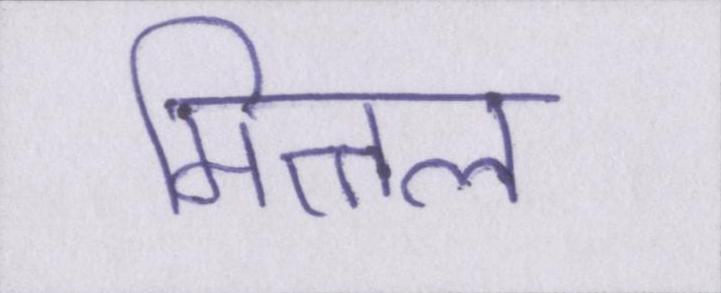 मित्तल